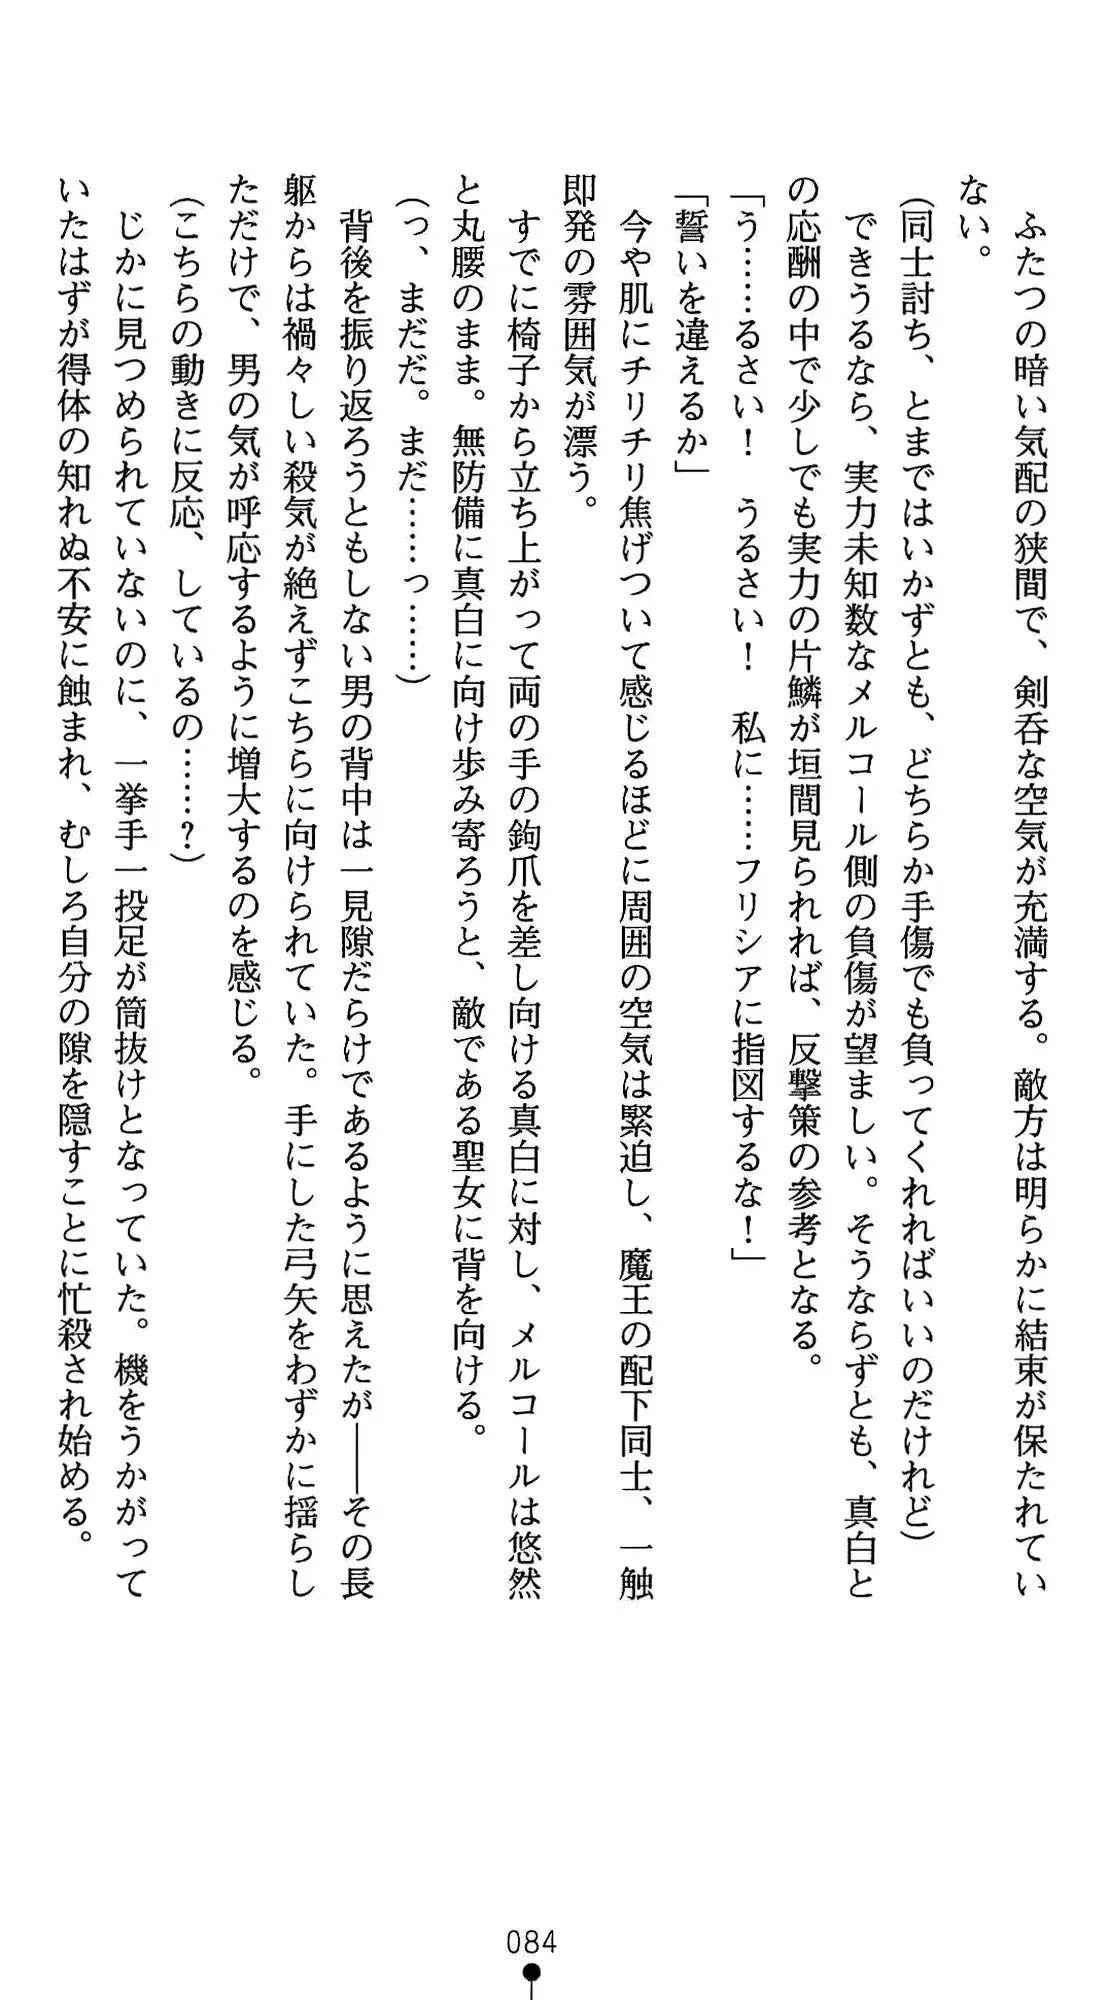 ふたつの暗い気配の狭間で、剣呑な空気が充満する。敵方は明らかに結束が保たれてい
ない。
(同士討ち、とまではいかずとも、どちらか手傷でも負ってくれればいいのだけれど)
できうるなら、実力未知数なメルコール側の負傷が望ましい。そうならずとも、真白と
の応酬の中で少しでも実力の片鱗が垣間見られれば、反撃策の参考となる。
「う……るさい！　うるさい！　私に……フリシアに指図するな！」
「誓いを違えるか」
今や肌にチリチリ焦げついて感じるほどに周囲の空気は緊迫し、魔王の配下同士、一触
即発の雰囲気が漂う。
すでに椅子から立ち上がって両の手の鉤爪を差し向ける真白に対し、メルコールは悠然
と丸腰のまま。無防備に真白に向け歩み寄ろうと、敵である聖女に背を向ける。
(っ、まだだ。まだ……っ……)
背後を振り返ろうともしない男の背中は一見隙だらけであるように思えたが――その長
躯からは禍々しい殺気が絶えずこちらに向けられていた。手にした弓矢をわずかに揺らし
ただけで、男の気が呼応するように増大するのを感じる。
(こちらの動きに反応、しているの……？)
じかに見つめられていないのに、一挙手一投足が筒抜けとなっていた。機をうかがって
いたはずが得体の知れぬ不安に蝕まれ、むしろ自分の隙を隠すことに忙殺され始める。
084